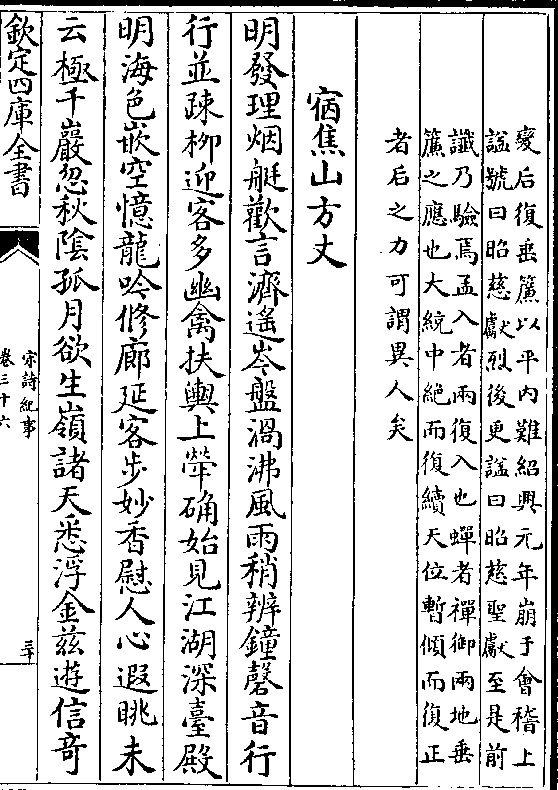 變后復垂簾以平内難紹興元年崩于會稽上
諡號曰昭慈獻烈後更諡曰昭慈聖獻至是前
讖乃驗焉孟入者兩復入也蟬者禪御兩地垂
簾之應也大統中絶而復續天位暫傾而復正
者后之力可謂異人矣
宿焦山方丈
明發理烟艇歡言濟遙岑盤渦沸風雨稍辨鐘磬音行
行並疎柳迎客多幽禽扶輿上犖确始見江湖深臺殿
明海色嵌空憶龍吟修廊延客步妙香慰人心遐眺未
云極千巖忽秋陰孤月欲生嶺諸天悉浮金兹遊信竒
欽定四庫全書
宋詩紀事
卷三十六
三十